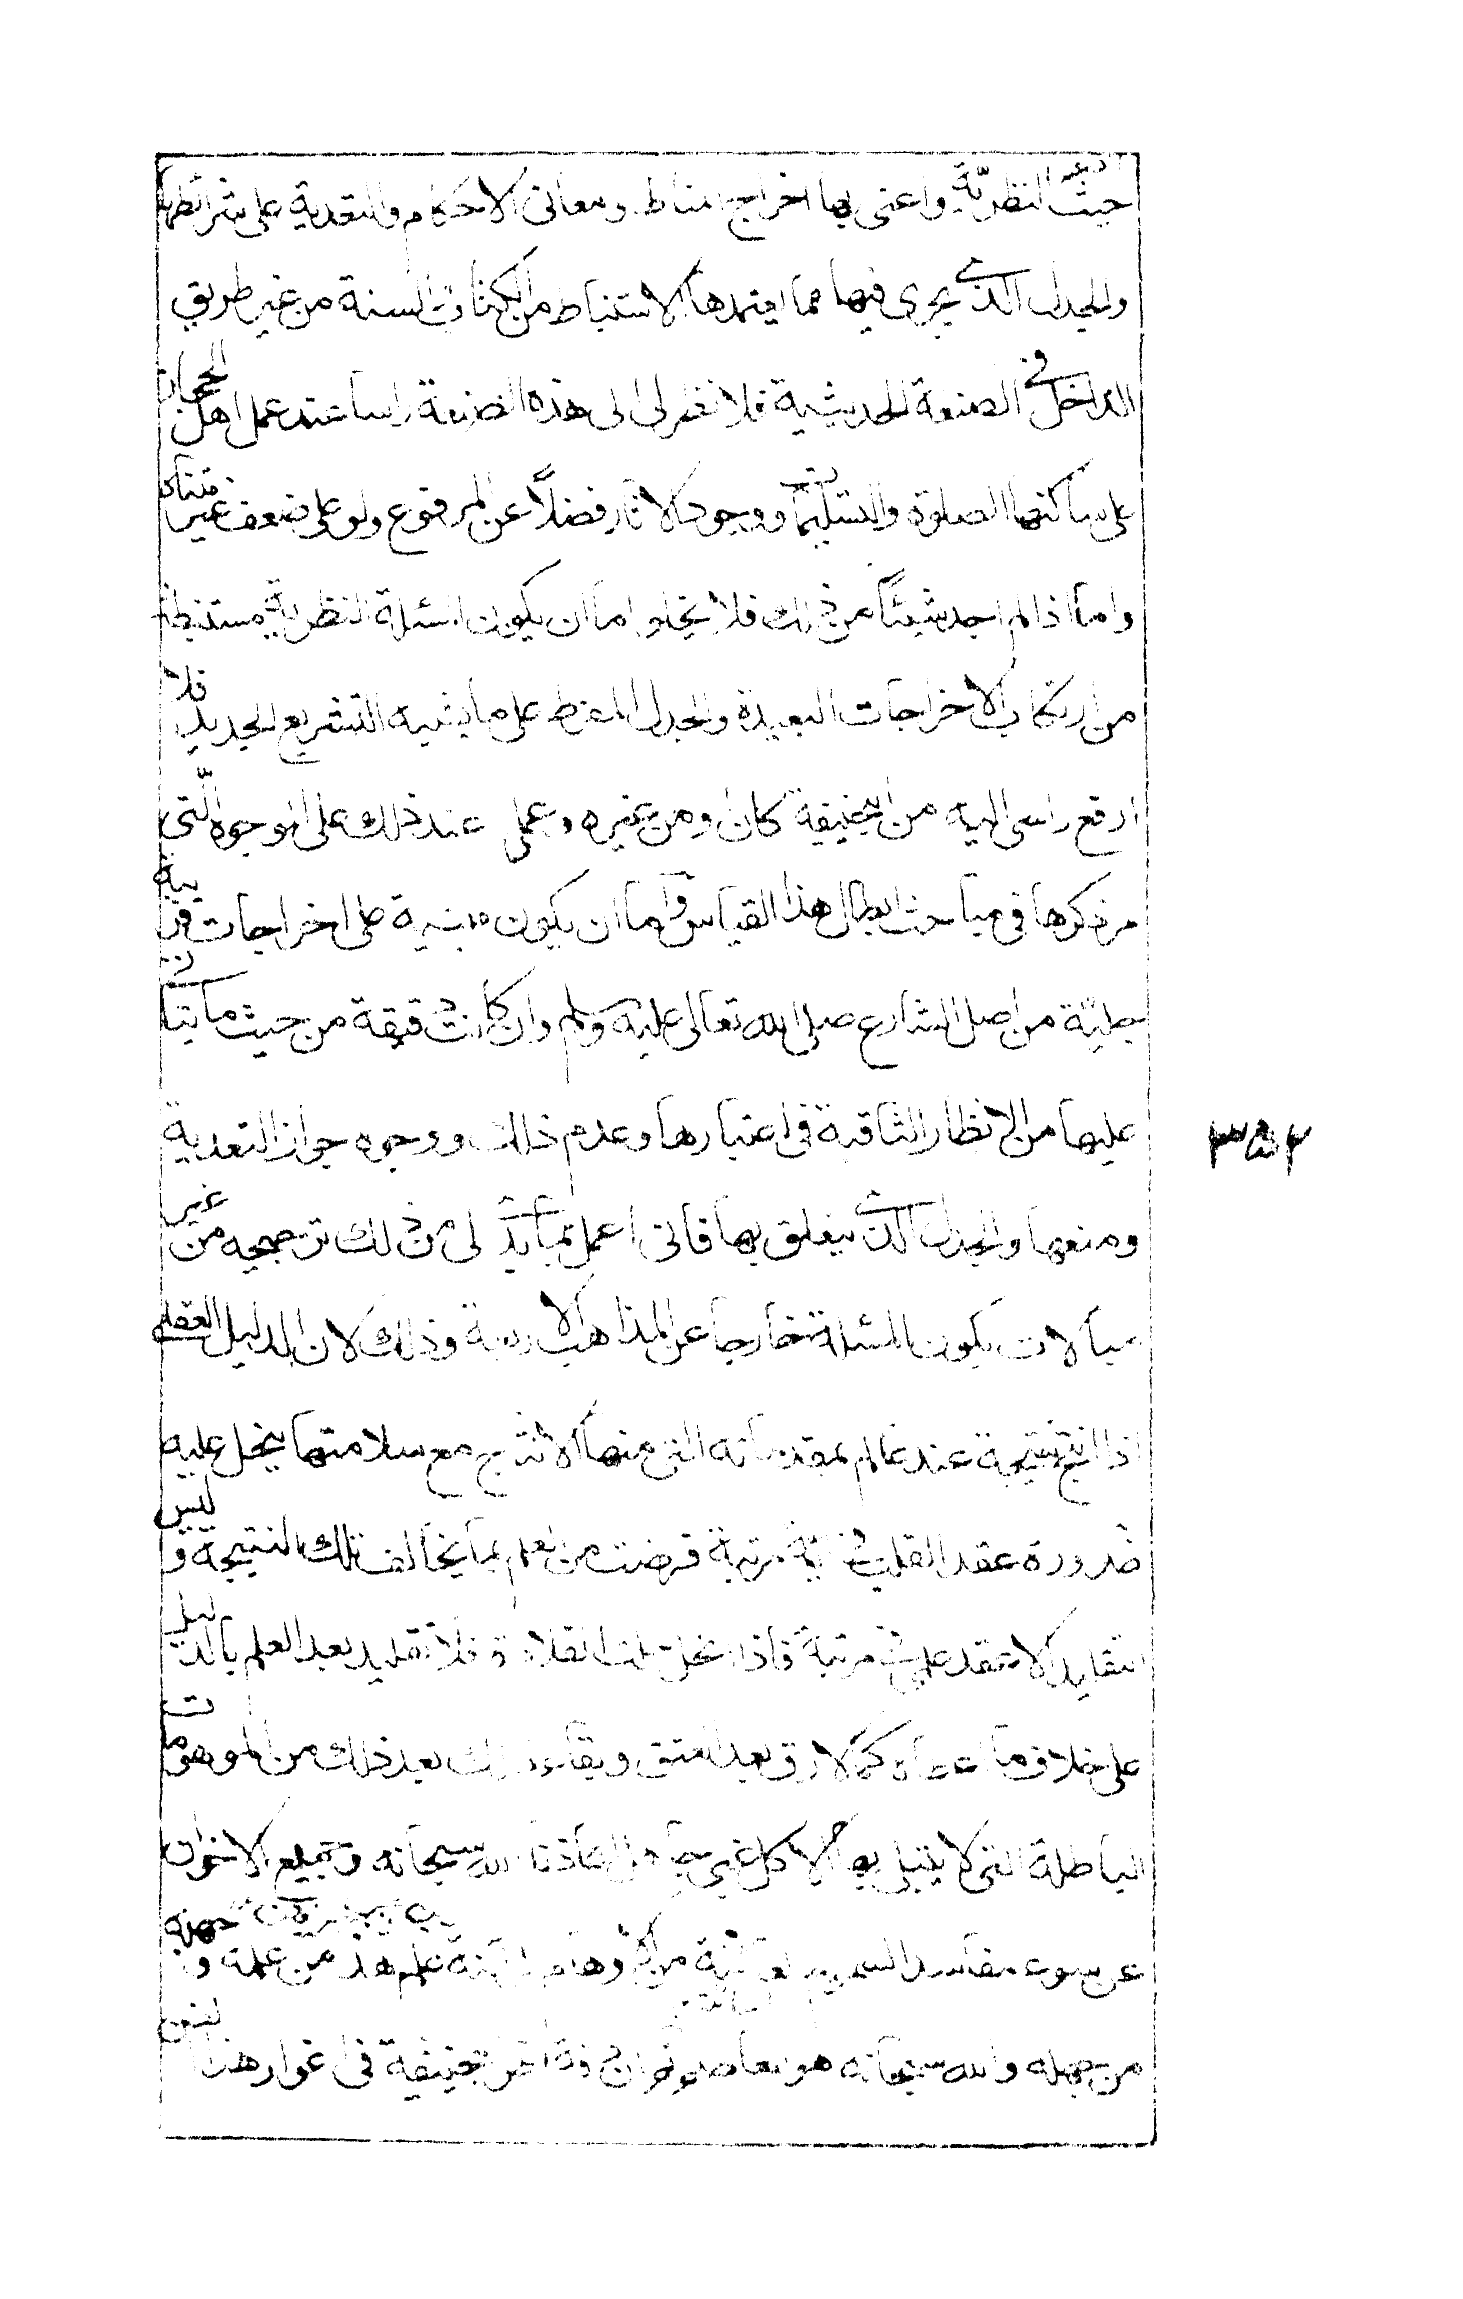 حيث النظريّة واعنى بها اخراج مناط ومعانى الاحكام والتعدية على شرائطها
والجدل الذى يجرى فيها مما يعتمدها الاستنباط من الكتاب والسنة من غير طريق
الداخل فى الصنعة الحديثية فلا نظر لى الى هذه الصنعة راسا عند عمل اهل الحجاز
على ساكنها الصلوة والتسليمات ووجود الاثار فضلاً عن المرفوع ولو على ضعف غير متناه
واما اذا لم اجد شيئاً من ذلك فلا يخلوا ما ان يكون المسئلة النظرية مستنبطة
من ارتكاب الاخراجات البعيدة والجدل المفرط على ما يشبه التشريع الجديد فلا
ارفع راسى اليه من ابيحنيفة كان ومن غيره وعملى عند ذلك على الوجوه الّتى
مر ذكرها فى مباحث ابطال هذا القياس واما ان يكون مبنية على اخراجات قريبة
جليّة من اصل الشارع صلى الله تعالى عليه وسلم وان كانت دقيقة من حيث ما يتأتى
عليها من الانظار الثاقبة فى اعتبارها وعدم ذلك ووجوه جواز التعدية
ومنعها والجدل الذى يتعلق بها فانى اعمل بما يتأتى لى من ذلك ترجيحه من غير
مبالات بكون المسئلة خارجا عن المذاهب الاربعة وذلك لان الدليل العقلى
اذا انتج نتيجة عند عالم بمقدماته التى منها الانتاج مع سلامتها يخل عليه
ضرورة عقد القلب فى اية مرتبة فرضت من العلم بما يخالف تلك النتيجة وليس
التقليد الا عقد على مرتبة فاذا انحل تلك القلادة فلا تقليد بعد العلم بالدليل
على خلاف ما كما لا رق بعد العتق وبقاء ذلك بعد ذلك من الموهومات
الباطلة التى لا يبتلى بها الا كل غبى جاهل اعاذنا الله سبحانه وجميع الاخوان
عن سوء مفاسد من علم هذا من علمه وجهله
من جهله والله سبحانه هو فى اغوار هذا الفن
٣٥٢